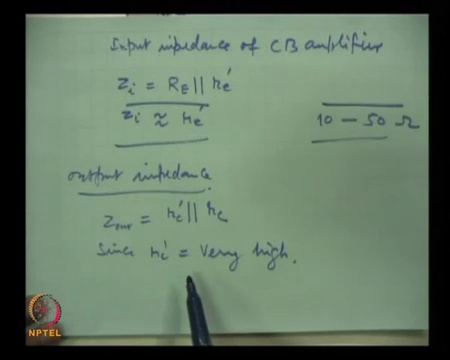 Input impedance of CB amplifier
Zi = RE || re'
Zi ≈ re'
10 - 50 Ω
output impedance
Zout = rc' || rc
Since rc' = Very high.
NPTEL